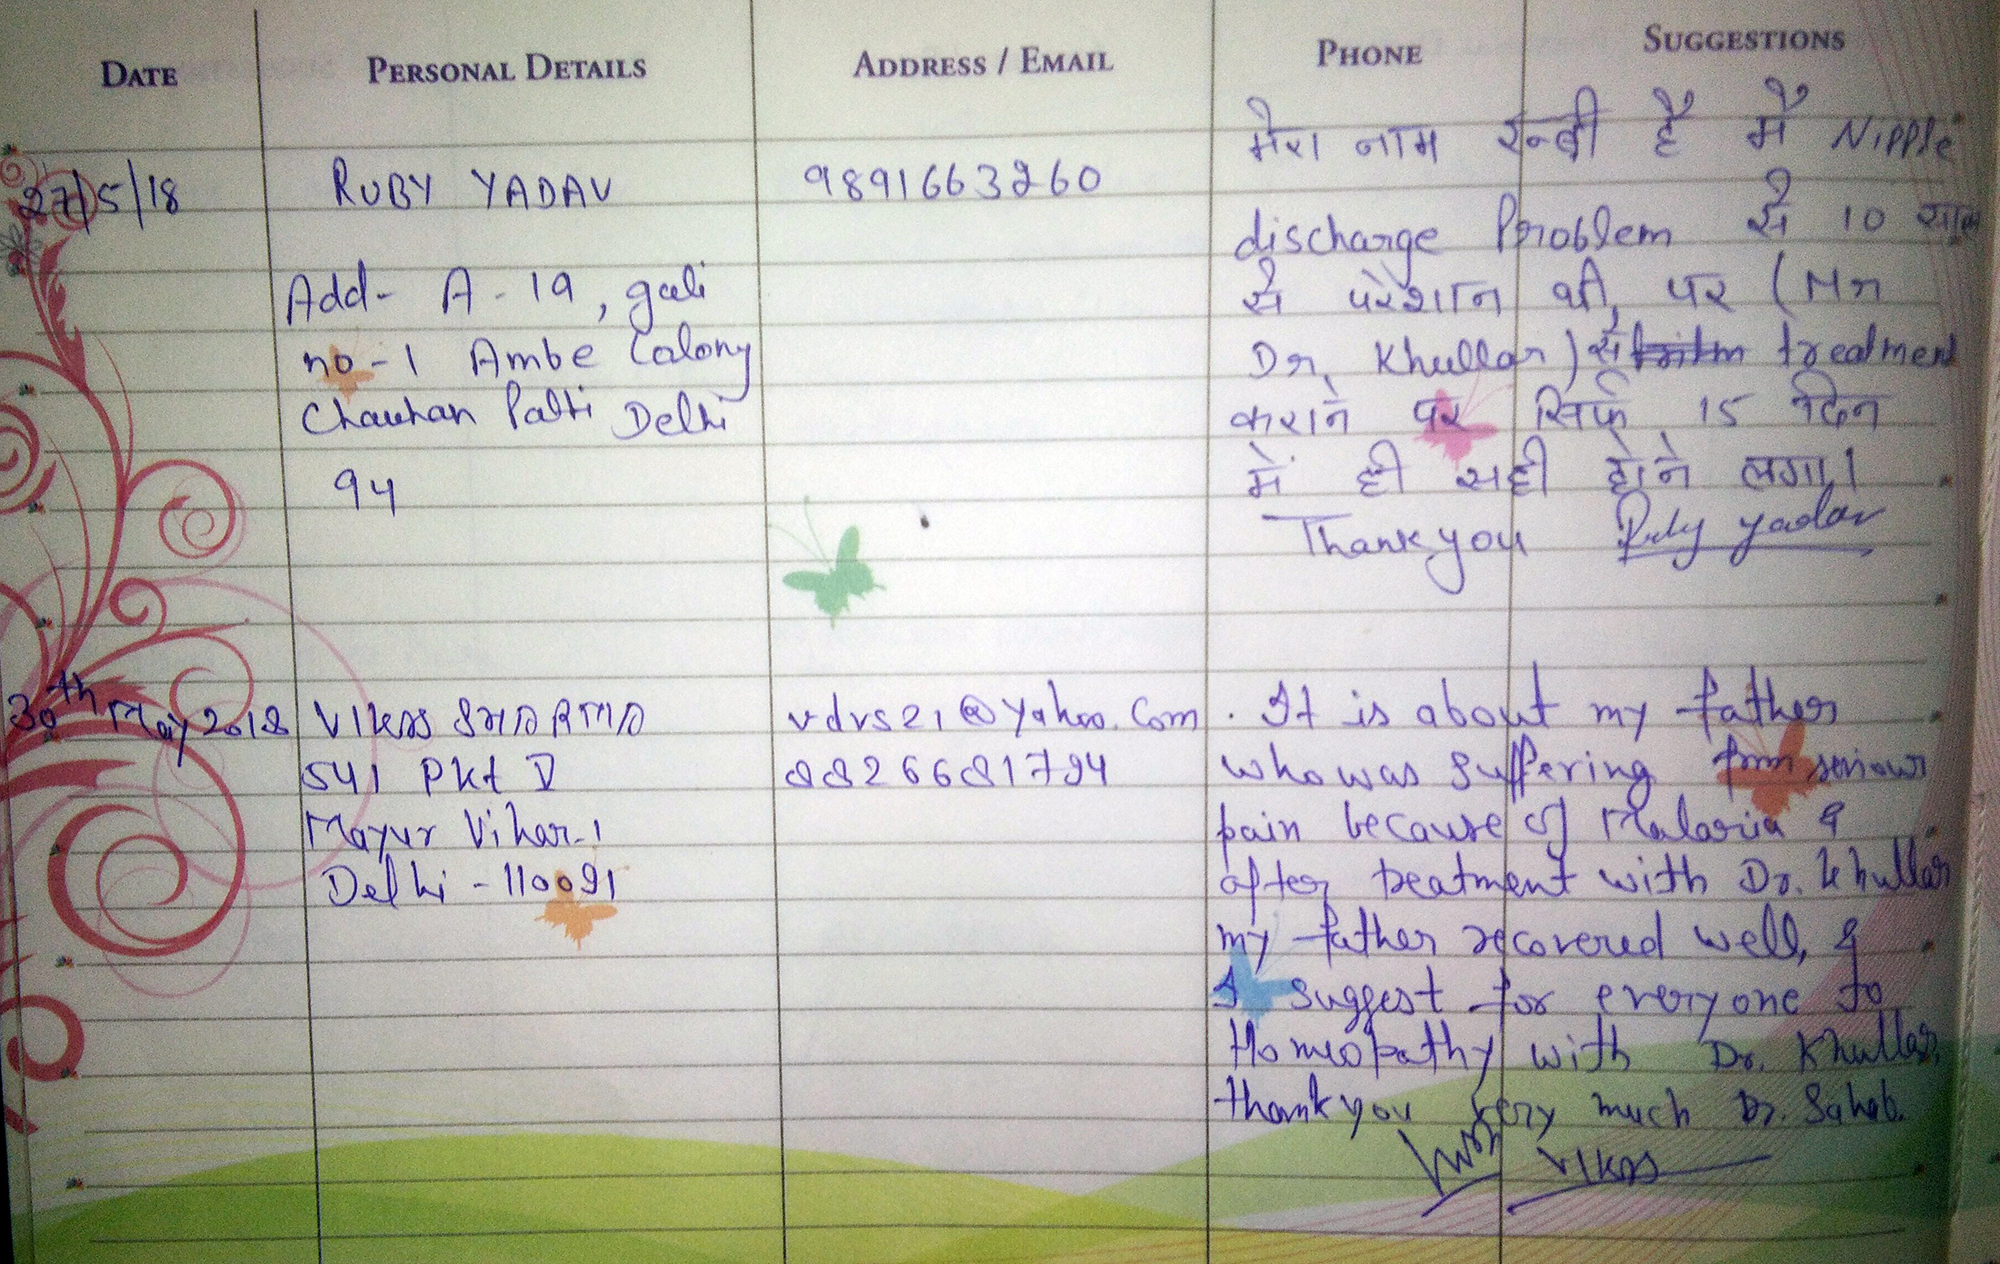 DATE PERSONAL DETAILS ADDRESS / EMAIL PHONE SUGGESTIONS
27/5/18 RUBY YADAV 9891663260
Add- A-19, gali
no-1 Ambe Calony
Chauhan Patti Delhi
94
मेरा नाम रुबी है मैं Nipple
discharge Problem से 10 साल
से परेशान थी, पर (Mr
Dr. Khullar) से treatment
कराने पर सिर्फ 15 दिन
में ही सही होने लगा।
Thank you Ruby Yadav
30th May 2018 VIKAS SHARMA vdvs21@yahoo.com
541 Pkt V 8826681794
Mayur Vihar-1
Delhi - 110091
It is about my father
who was suffering from serious
pain because of Malaria &
after treatment with Dr. Khullar
my father recovered well, &
I suggest for everyone to
Homeopathy with Dr. Khullar,
thank you very much Dr. Saheb.
VIKAS